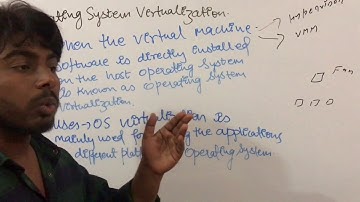 ating System Virtualization.
When the virtual machine
Software is directly installed
on the host operating System
is known as operating System
virtualization.
Uses → OS virtualization is
mainly used for the applications
different plat Operating System.
Hypervisor
VMM